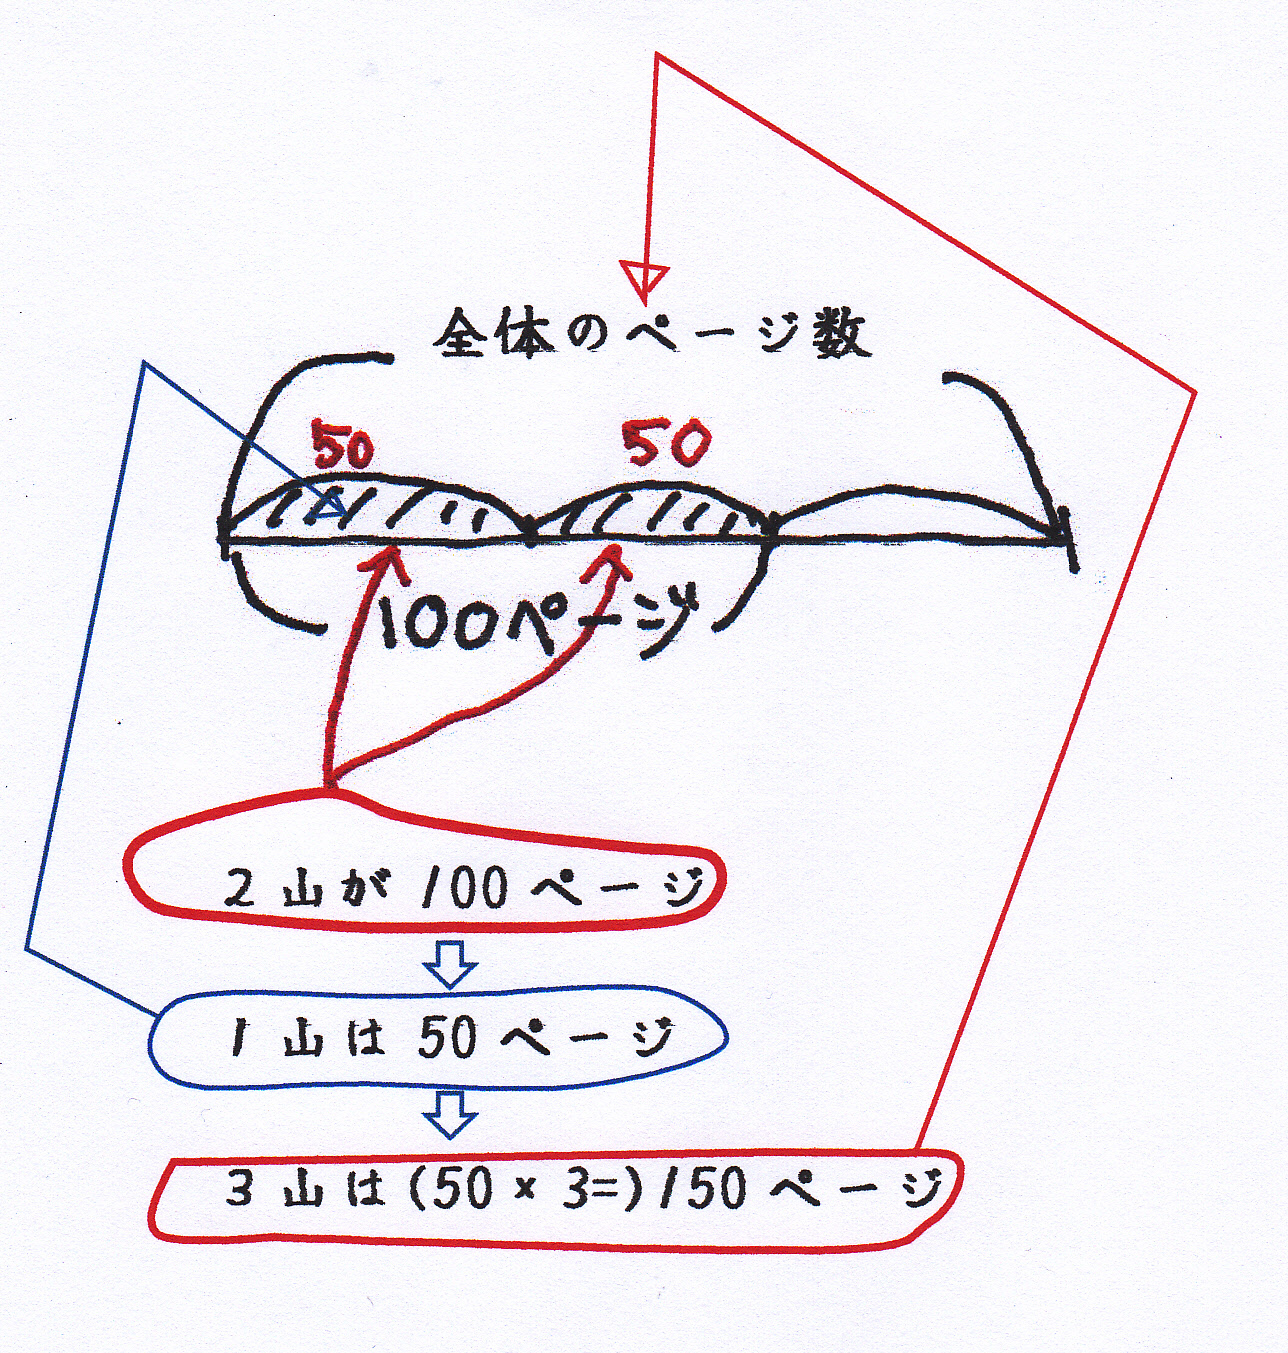 全体のページ数
50 50
100ページ
2山が100ページ
1山は50ページ
3山は(50×3=)150ページ